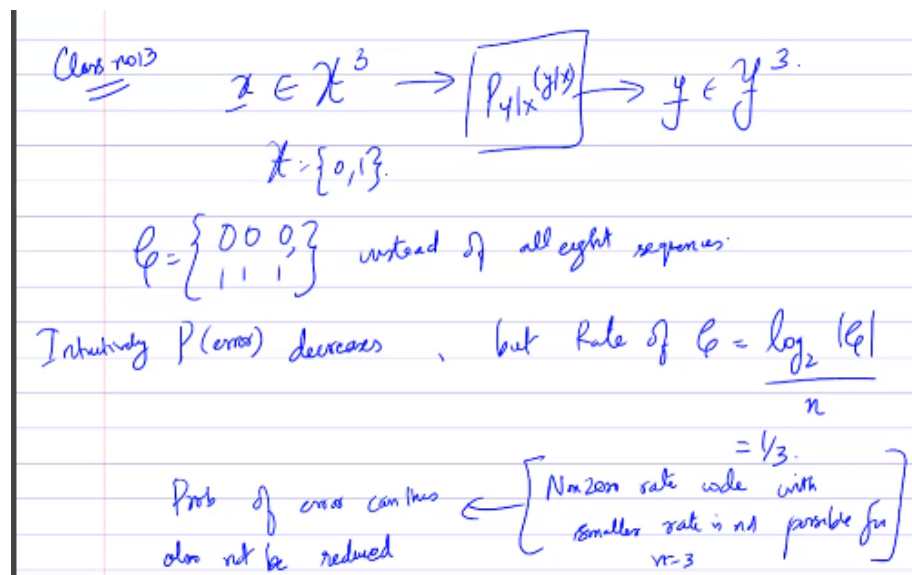 Class no 13
x ∈ 𝒳³ → P_{Y|X}(y|x) → y ∈ 𝒴³.
𝒳 = {0,1}.
𝒞 = {0 0 0, 1 1 1} instead of all eight sequences.
Intuitively P(error) decreases, but Rate of 𝒞 = log₂ |𝒞| / n
= 1/3.
Prob of error can thus ← [Non zero rate code with
also not be reduced smaller rate is not possible for
n=3]